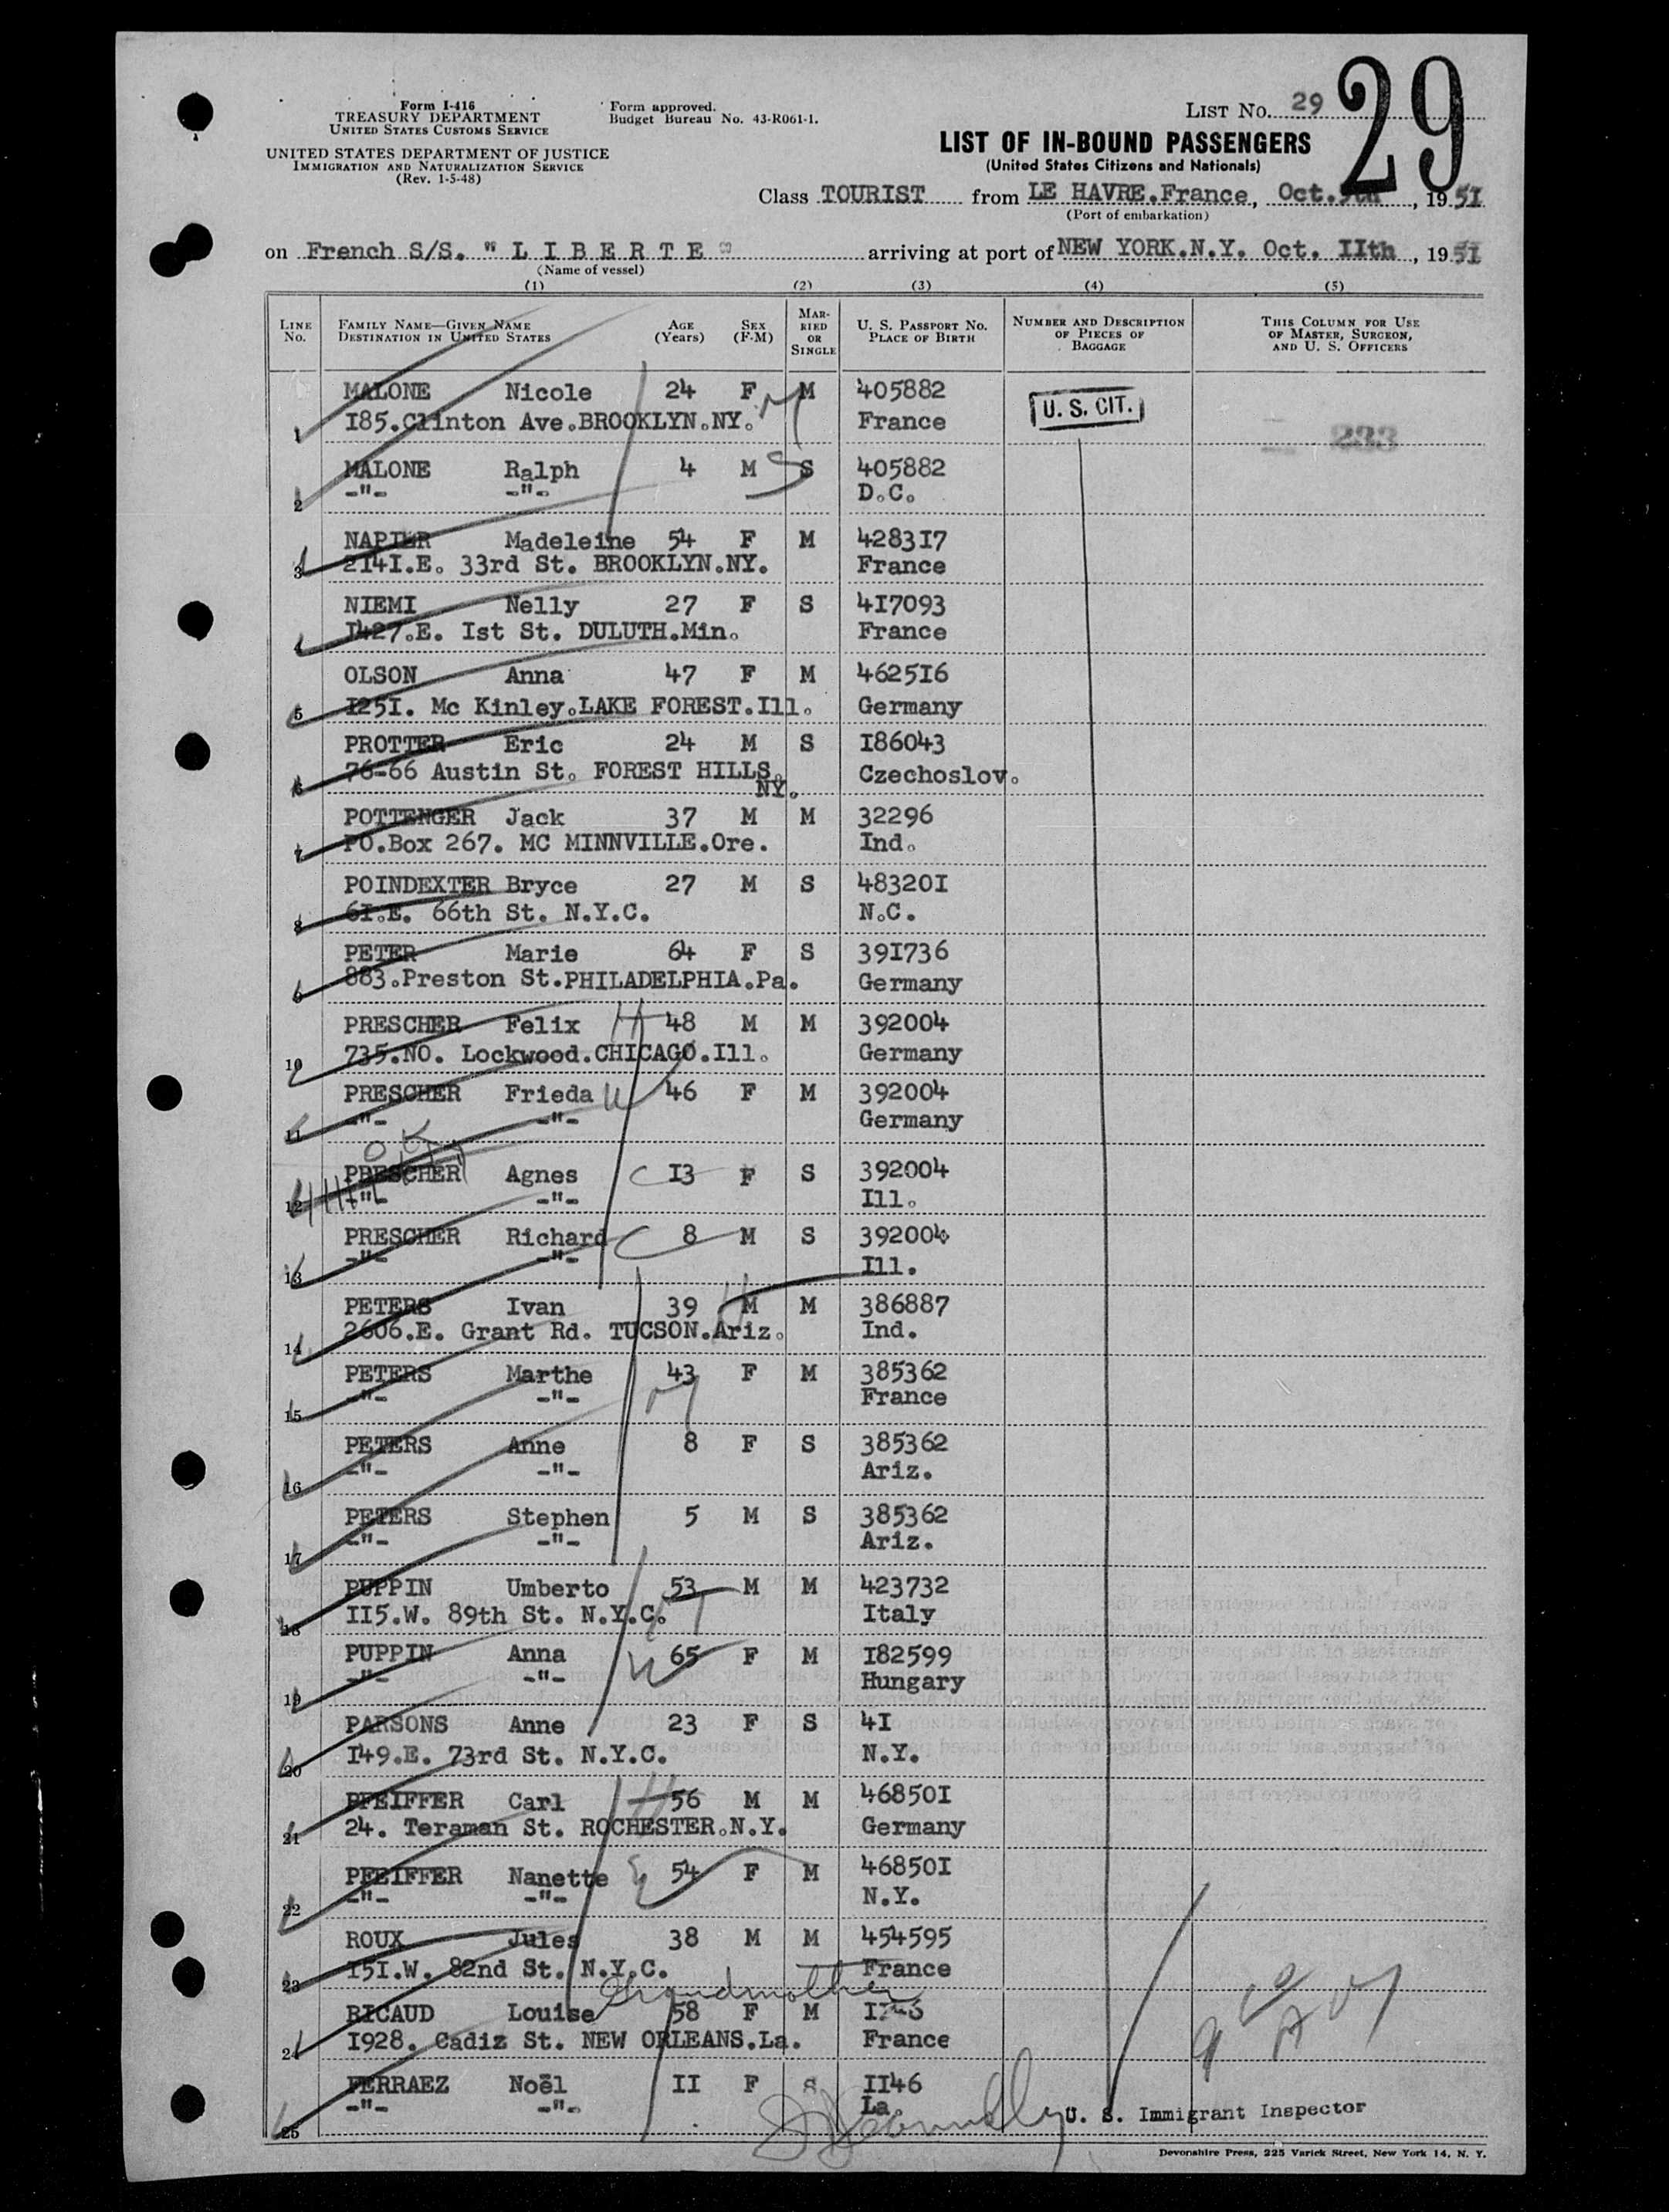 29
Form I-416
TREASURY DEPARTMENT
UNITED STATES CUSTOMS SERVICE
UNITED STATES DEPARTMENT OF JUSTICE
IMMIGRATION AND NATURALIZATION SERVICE
(Rev. 1-5-48)
Form approved.
Budget Bureau No. 43-R061-1.
LIST NO. 29
LIST OF IN-BOUND PASSENGERS
(United States Citizens and Nationals)
Class TOURIST from LE HAVRE.France, Oct.9th, 1951
(Port of embarkation)
on French S/S. "LIBERTE" arriving at port of NEW YORK.N.Y. Oct. IIth, 1951
(Name of vessel)
(1) (2) (3) (4) (5)
LINE NO. FAMILY NAME—GIVEN NAME DESTINATION IN UNITED STATES AGE (Years) SEX (F-M) MARRIED OR SINGLE U. S. PASSPORT NO. PLACE OF BIRTH NUMBER AND DESCRIPTION OF PIECES OF BAGGAGE THIS COLUMN FOR USE OF MASTER, SURGEON, AND U. S. OFFICERS
MALONE Nicole 24 F M 405882 U. S. CIT.
1 I85.Clinton Ave.BROOKLYN.NY. France 233
MALONE Ralph 4 M S 405882
2 -"- -"- D.C.
NAPIER Madeleine 54 F M 4283I7
3 2I4I.E. 33rd St. BROOKLYN.NY. France
NIEMI Nelly 27 F S 4I7093
4 I427.E. Ist St. DULUTH.Min. France
OLSON Anna 47 F M 4625I6
5 I25I. Mc Kinley.LAKE FOREST.Ill. Germany
PROTTER Eric 24 M S I86043
6 76-66 Austin St. FOREST HILLS. NY. Czechoslov.
POTTENGER Jack 37 M M 32296
7 PO.Box 267. MC MINNVILLE.Ore. Ind.
POINDEXTER Bryce 27 M S 48320I
8 6I.E. 66th St. N.Y.C. N.C.
PETER Marie 64 F S 39I736
9 883.Preston St.PHILADELPHIA.Pa. Germany
PRESCHER Felix H 48 M M 392004
10 735.NO. Lockwood.CHICAGO.Ill. Germany
PRESCHER Frieda W 46 F M 392004
11 -"- -"- Germany
OK
PRESCHER Agnes C I3 F S 392004
12 -"- -"- Ill.
PRESCHER Richard C 8 M S 392004
13 -"- -"- Ill.
PETERS Ivan 39 M M 386887
14 2606.E. Grant Rd. TUCSON.Ariz. Ind.
PETERS Marthe 43 F M 385362
15 -"- -"- France
PETERS Anne 8 F S 385362
16 -"- -"- Ariz.
PETERS Stephen 5 M S 385362
17 -"- -"- Ariz.
PUPPIN Umberto 53 M M 423732
18 II5.W. 89th St. N.Y.C. Italy
PUPPIN Anna W 65 F M I82599
19 -"- -"- Hungary
PARSONS Anne 23 F S 4I
20 I49.E. 73rd St. N.Y.C. N.Y.
PFEIFFER Carl H 56 M M 46850I
21 24. Teraman St. ROCHESTER.N.Y. Germany
PFEIFFER Nanette 54 F M 46850I
22 -"- -"- N.Y.
ROUX Jules 38 M M 454595
23 I5I.W. 82nd St. N.Y.C. France
Grandmother
RICAUD Louise 58 F M
24 I928. Cadiz St. NEW ORLEANS.La. France
FERRAEZ Noël II F S II46
25 -"- -"- La.
U. S. Immigrant Inspector
Devonshire Press, 225 Varick Street, New York 14, N. Y.